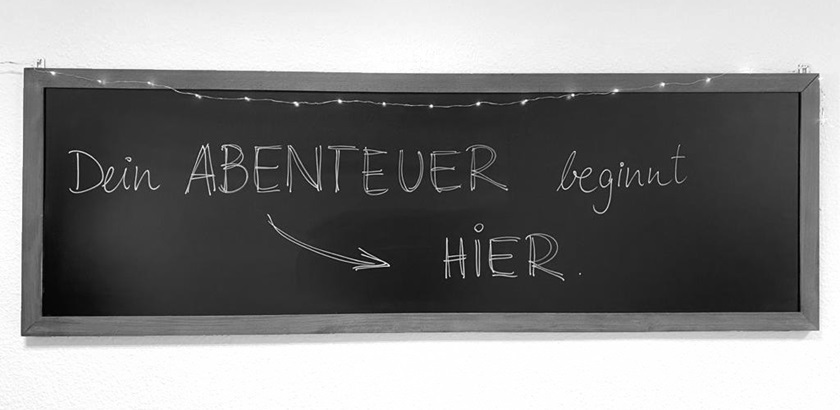 Dein ABENTEUER beginnt
HiER.